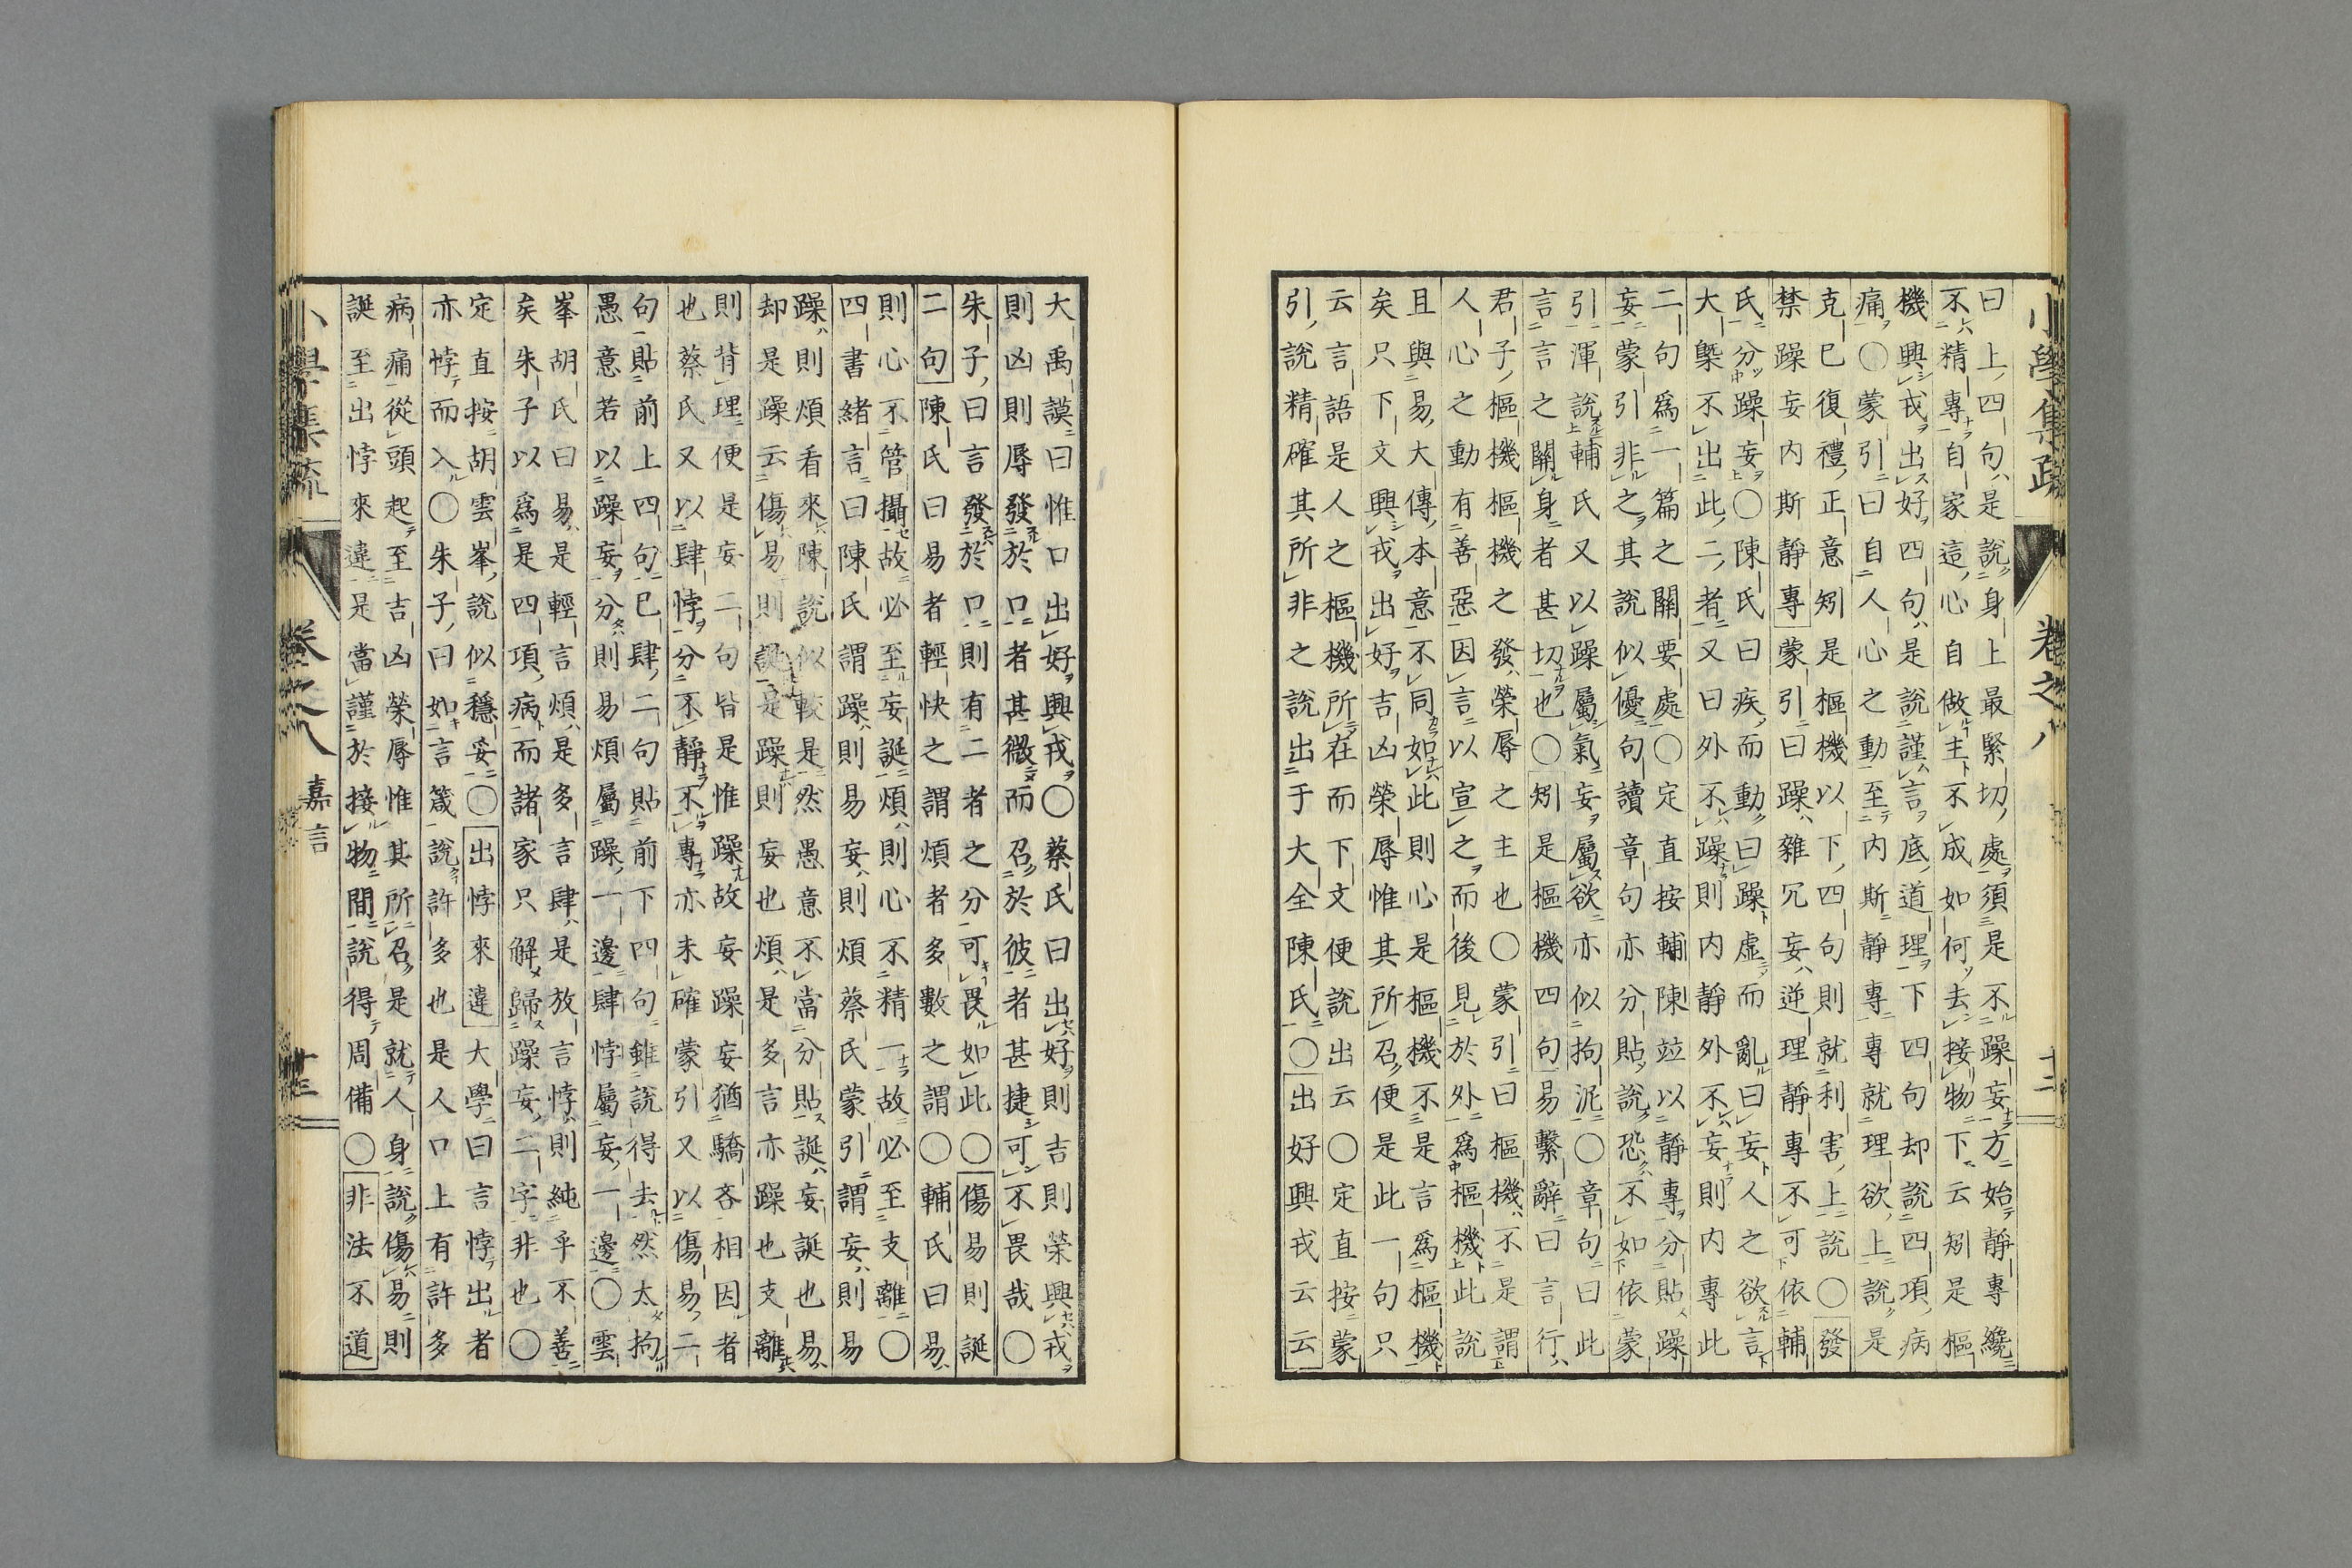 小學集疏 卷之八 十二
曰上四句是說身上最緊切處須是不躁妄方始靜專纔
不精專自家這心自做主不成如何去接物下云矧是樞
機興戎出好四句是說謹言底道理下四句却說四項病
痛○蒙引曰自人心之動至內斯靜專專就理欲上說是
克已復禮正意矧是樞機以下四句則就利害上說○發
禁躁妄內斯靜專蒙引曰躁雜冗妄逆理靜專不可依輔
氏分躁妄○陳氏曰疾而動曰躁虛而亂曰妄人之欲言
大槩不出此二者又曰外不躁則內靜外不妄則內專此
二句爲一篇之關要處○定直按輔陳竝以靜專分貼躁
妄蒙引非之其說似優句讀章句亦分貼說恐不如依蒙
引渾說輔氏又以躁屬氣妄屬欲亦似拘泥○章句曰此
言言之關身者甚切也○矧是樞機四句易繫辭曰言行
君子樞機樞機之發榮辱之主也○蒙引曰樞機不是謂
人心之動有善惡因言以宣之而後見於外爲樞機此說
且與易大傳本意不同如此則心是樞機不是言爲樞機
矣只下文興戎出好吉凶榮辱惟其所召便是此一句只
云言語是人之樞機所在而下文便說出云○定直按蒙
引說精確其所非之說出于大全陳氏○出好興戎云云
大禹謨曰惟口出好興戎○蔡氏曰出好則吉則榮興戎
則凶則辱發於口者甚微而召於彼者甚捷可不畏哉○
朱子曰言發於口則有二者之分可畏如此○傷易則誕
二句陳氏曰易者輕快之謂煩者多數之謂○輔氏曰易
則心不管攝故必至妄誕煩則心不精一故必至支離○
四書緒言曰陳氏謂躁則易妄則煩蔡氏蒙引謂妄則易
躁則煩看來陳說似較是然愚意不當分貼誕妄誕也易
却是躁云傷易則誕是躁則妄也煩是多言亦躁也支離
則背理便是妄二句皆是惟躁故妄躁妄猶驕吝相因者
也蔡氏又以肆悖分不靜不專亦未確蒙引又以傷易二
句貼前上四句已肆二句貼前下四句雖說得去然太拘
愚意若以躁妄分則易煩屬躁一邊肆悖屬妄一邊○雲
峯胡氏曰易是輕言煩是多言肆是放言悖則純乎不善
矣朱子以爲是四項病而諸家只解歸躁妄二字非也○
定直按胡雲峯說似穩妥○出悖來違大學曰言悖出者
亦悖而入○朱子曰如言箴說許多也是人口上有許多
病痛從頭起至吉凶榮辱惟其所召是就人身說傷易則
誕至出悖來違是當謹於接物間說得周備○非法不道
小學集疏 卷之八 嘉言 十三